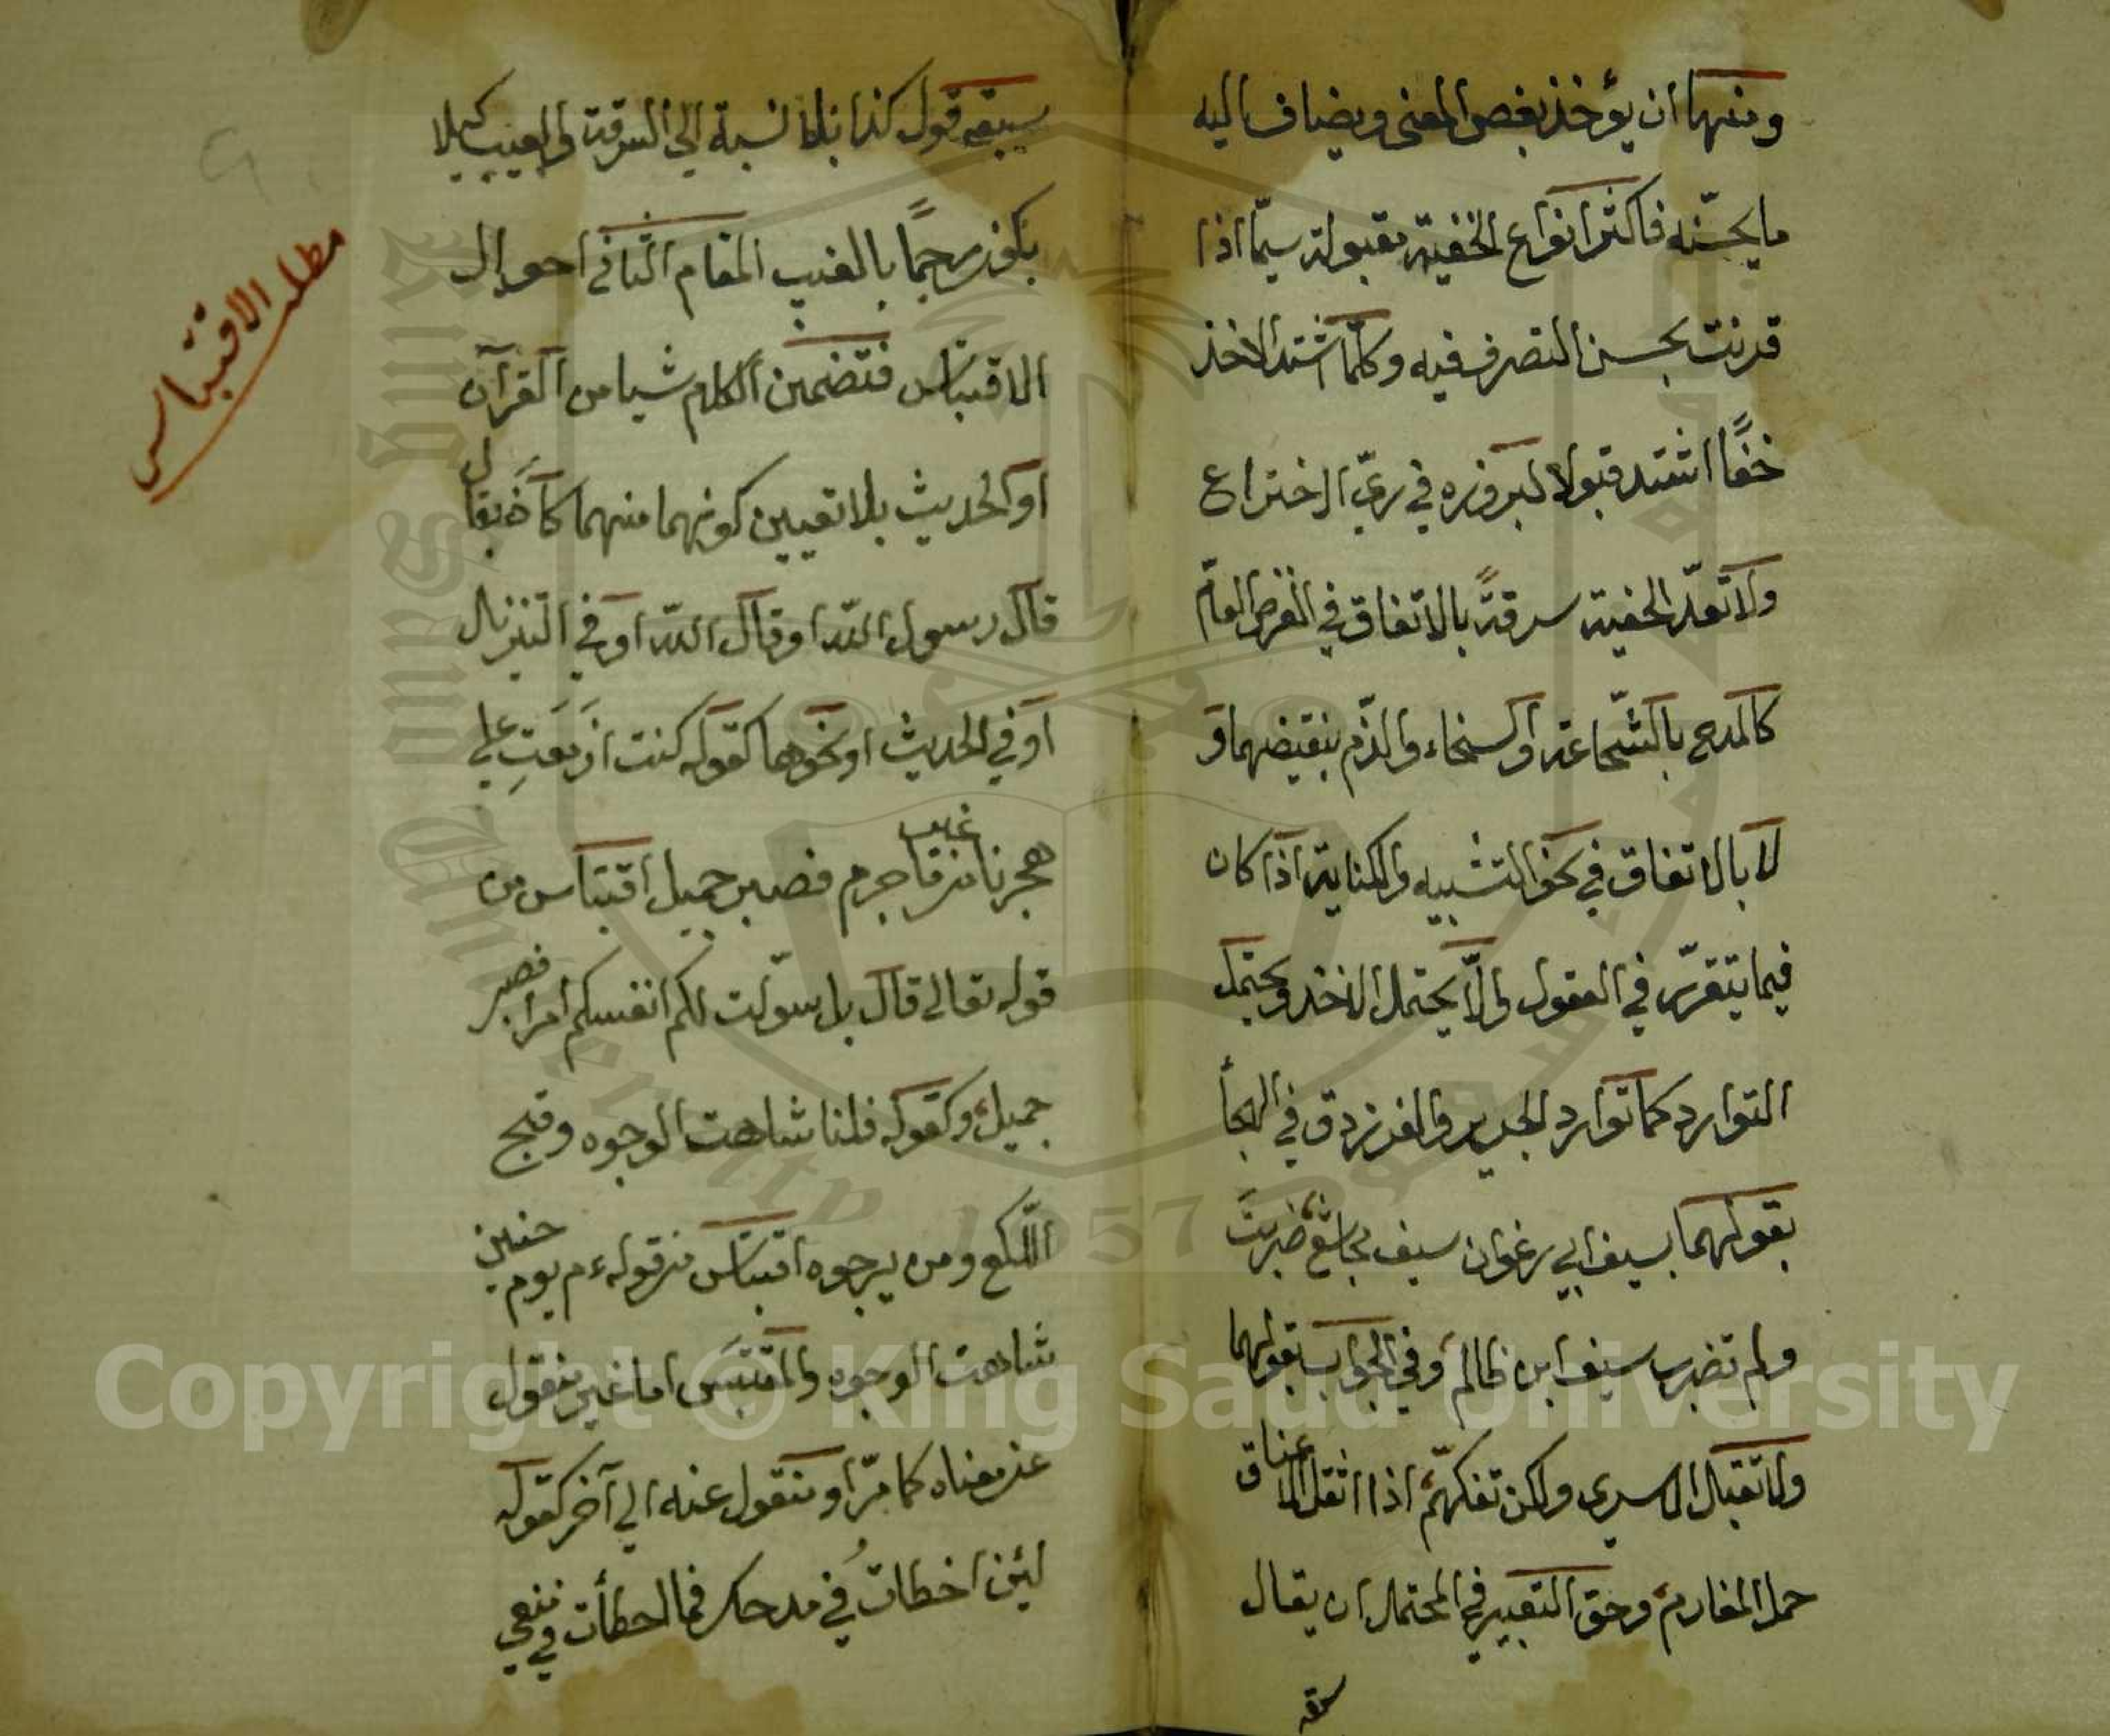 ومنها ان يؤخذ بعض المعنى ويضاف اليه
ما يحسّنه فاكثر انواع الخفية مقبولة سيّما اذا
قرنت بحسن التصرف فيه وكلّما اشتد الاخذ
خفًا اشتد قبولا لبروزه في زيّ الاختراع
ولا تعدّ الخفية سرقةً بالاتفاق في الغرض العامّ
كالمدح بالشّجاعة او السخاء والذّم بنقيضهما و
لا بالاتفاق في نحو التشبيه والكناية اذا كان
فيما يتقرّر في العقول والّا يحتمل الاخذ ويحتمل
التوارد كما توارد الجرير والفرزدق في الهجأ
بقولهما بسيف ابي رغوان سيف مجاشع ضربت
ولم تضرب سيف ابن ظالم وفي الجواب بقولهما
ولا نقتل الاسرى ولكن نفكهمّ اذا اثقل الاعناق
حمل المغارم وحق التعبير في المحتمل ان يقال
سبقه قول كذا بلا نسبة الى السرقة والعيب كيلا
يكون رجمًا بالغيب المقام الثاني في احوال
الاقتباس فتضمين الكلام شيا من القرآن
او الحديث بلا تعيين كونهما منهما كأن يقال
قال رسول اللّه او قال اللّه او في التنزيل
او في الحديث او نحوهما كقوله كنت ازمعت على
هجرنا من غير ما جرم فصبر جميل اقتباس من
قوله تعالى قال بل سوّلت لكم انفسكم امرا فصبر
جميل وكقوله قلنا شاهت الوجوه وقبح
اللّكع ومن يرجوه اقتباس من قوله ءم يوم حنين
شاهت الوجوه والمقتبس اما غير منقول
عن معناه كما مرّ او منقول عنه الى آخر كقوله
لئن اخطات في مدحك فما اخطأت في منعي
مطلب الاقتباس
Copyright © King Saud University
1957